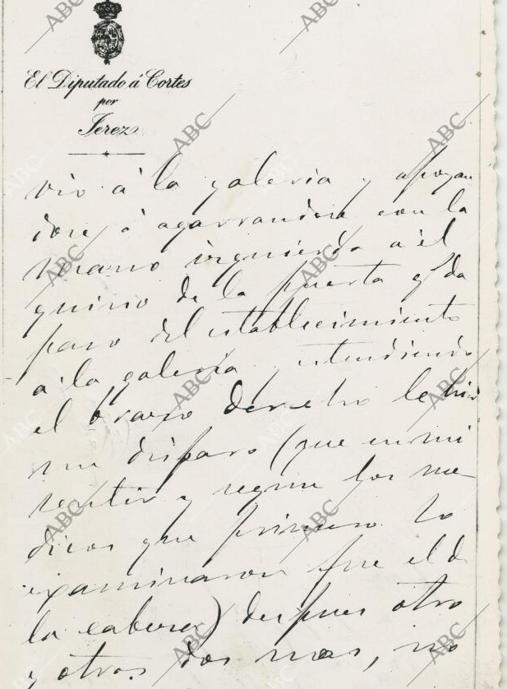 El Diputado á Cortes
por
Jerez
vio á la galeria y apoyan
dose ó agarrandose con la
mano izquierda á el
quicio de la puerta q/ da
paso del establecimiento
á la galería y estendiendo
el brazo derecho le hi
un disparo (que en mi
sentir y segun los me
dicos que primero lo
examinaron fue el d
la cabeza) despues otro
y otros dos mas, no
ABC
ABC
ABC
ABC
ABC
ABC
ABC
ABC
ABC
ABC
ABC
ABC
ABC
ABC